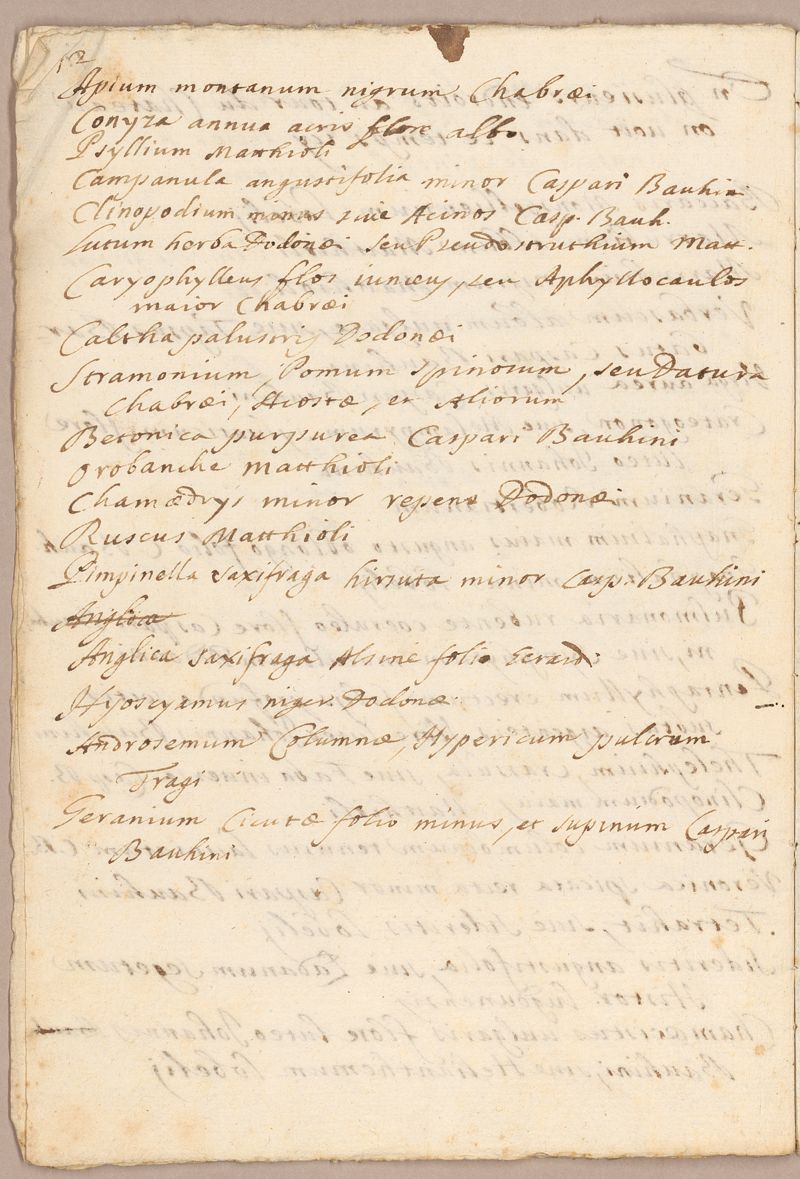 12
Apium montanum nigrum Chabræi
Conyza annua acris flore albo
Psyllium Matthioli
Campanula angustifolia minor Caspari Bauhini
Clinopodium minus sive Acinos Casp. Bauh.
Lutum herba Dodonæi seu Pseudostruthium Matt.
Caryophylleus flos iunceus, seu Aphyllocaulos
maior Chabræi
Caltha palustris Dodonæi
Stramonium, Pomum spinosum, seu Datura
Chabræi, Acostæ, et Aliorum
Betonica purpurea Caspari Bauhini
Orobanche Matthioli
Chamædrys minor repens Dodonæi
Ruscus Matthioli
Pimpinella saxifraga hirsuta minor Casp. Bauhini
Anglica
Anglica saxifraga Alsine folio Gerardi
Hyoscyamus niger Dodonæi
Androsemum Columnæ, Hypericum pulcrum
Tragi
Geranium Cicutæ folio minus, et supinum Caspari
Bauhini